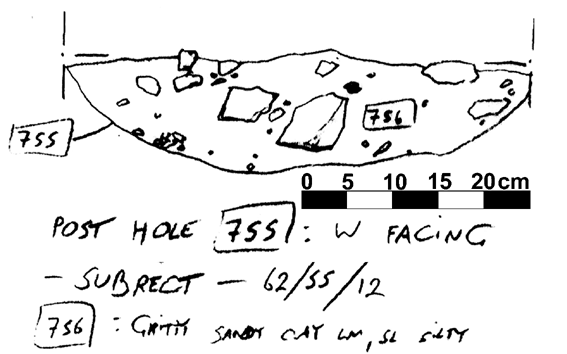 755
756
0 5 10 15 20 cm
POST HOLE 755 : W FACING
- SUBRECT - 62/55/12
756 : GRITTY SANDY CLAY LM, SL SILTY